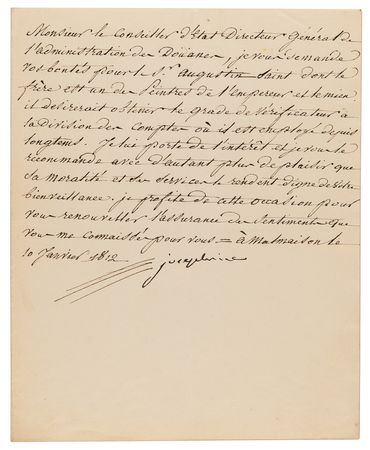 Monsieur le Conseiller d'Etat Directeur Général de
l'administration des Douänes, je vous demande
vos bontés pour le Sr. Augustin Saint dont le
frère est un des Peintres de l'Empereur et le mien
il désirerait obtenir le grade de Vérificateur à
la division des Comptes où il est employé depuis
longtems. Je lui porte de l'intérêt et je vous le
recommande avec d'autant plus de plaisir que
sa moralité et ses services le rendent digne de votre
bienveillance. je profite de cette occasion pour
vous renouveller l'assurance des Sentimens que
vous me connaissez pour vous = à Malmaison le
10 Janvier 1812
josephine